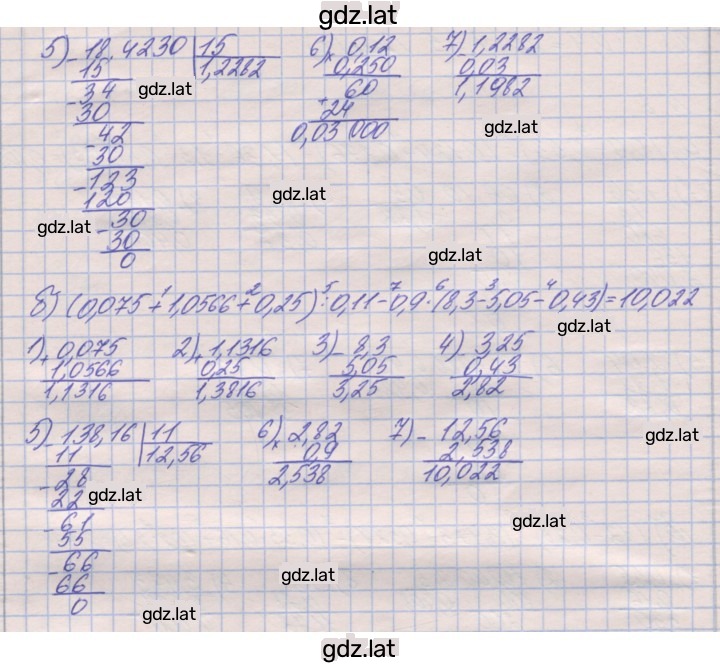 gdz.lat
5) - 18,4230 | 15   6) × 0,12   7) - 1,2282
15   1,2282   0,250   0,03
- 34   gdz.lat   + 60   1,1982
30   24
- 42   0,03000   gdz.lat
30
- 123
120   gdz.lat
gdz.lat   - 30
30   gdz.lat
0
б) (0,075 + 1,0566 + 0,25) : 0,11 - 0,9 · (8,3 - 5,05 - 0,43) = 10,022
1 2 5 7 6 3 4
gdz.lat
1) + 0,075   2) + 1,1316   3) - 8,3   4) 3,25
1,0566   0,25   5,05   0,43
1,1316   1,3816   3,25   2,82
5) - 138,16 | 11   6) × 2,82   7) - 12,56   gdz.lat
11   12,56   0,9   2,538
- 28   2,538   10,022
22   gdz.lat
- 61   gdz.lat
55
- 66   gdz.lat
66
0   gdz.lat
gdz.lat